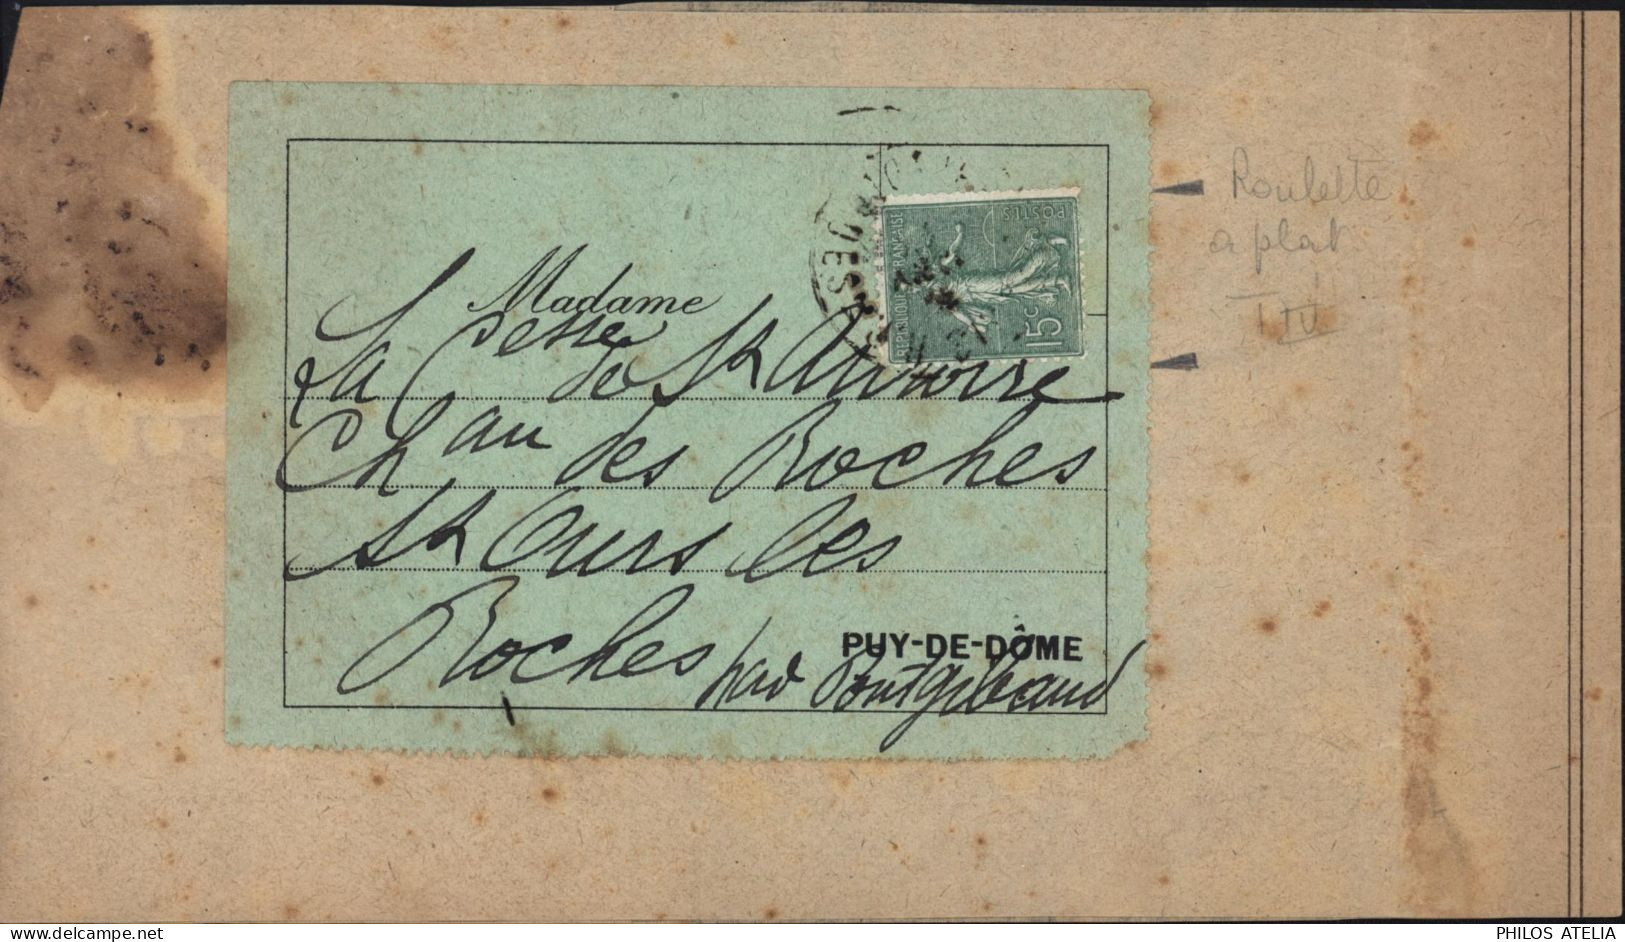 Madame
La Cesse de St Antoine
Chau des Roches
St Ours les
Roches par Pontgibaud
PUY-DE-DÔME
REPUBLIQUE FRANÇAISE
POSTES
15c
Roulette
a plat
delcampe.net
PHILOS ATELIA